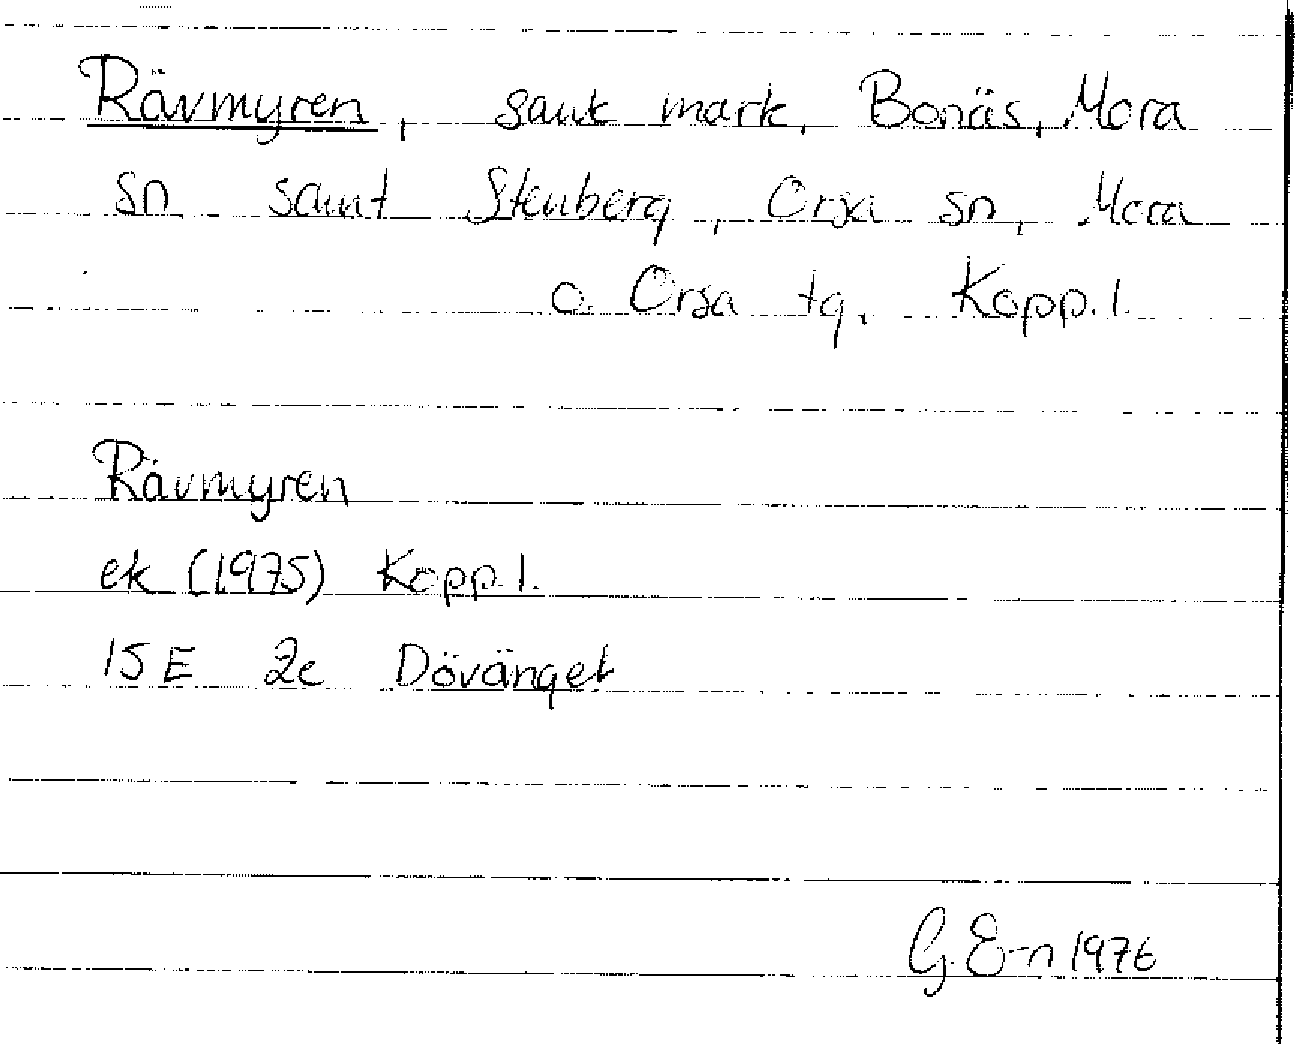 Rävmyren, sank mark, Bonäs, Mora
sn samt Stenberg, Orsa sn, Mora
o. Orsa tg, Kopp. l.
Rävmyren
ek (1975) Kopp. l.
15 E 2c Dövänget
G. E-n 1976